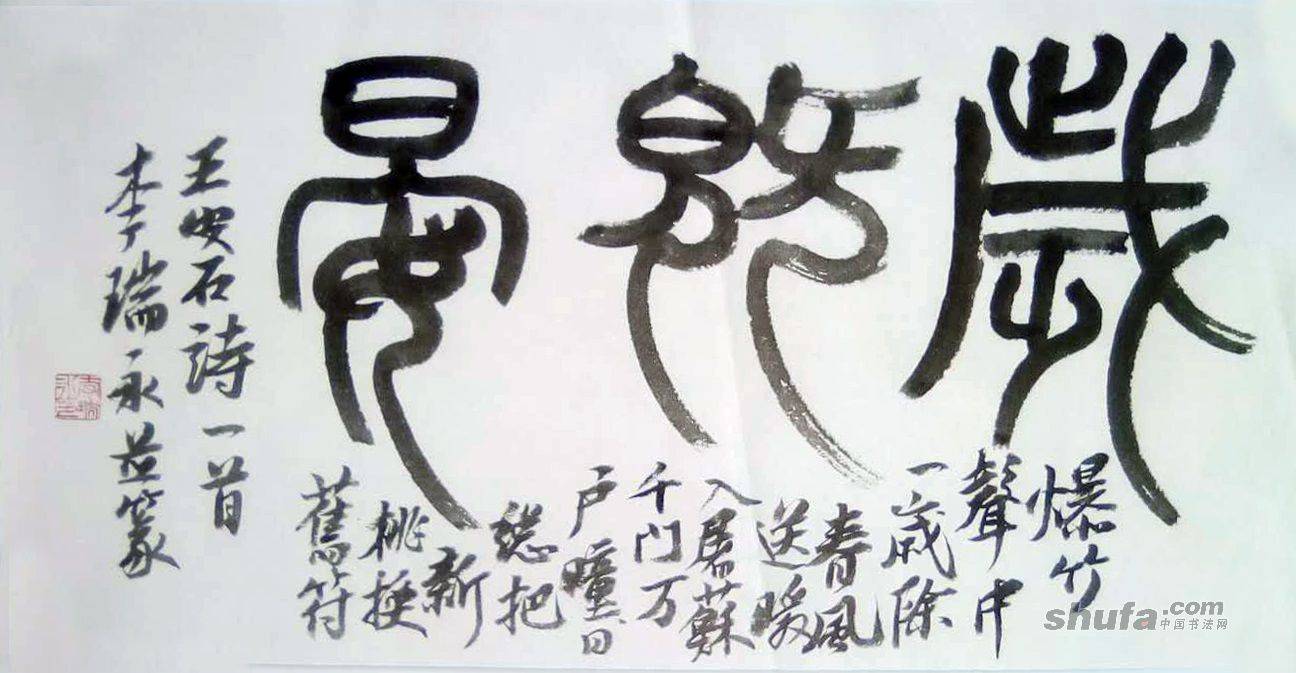 歲既晏
爆竹
聲中
一歲除
春風
送暖
入屠蘇
千门万
户曈々日
總把
新
桃换
舊符
王安石詩一首
李瑞永並篆
shufa.com
中国书法网